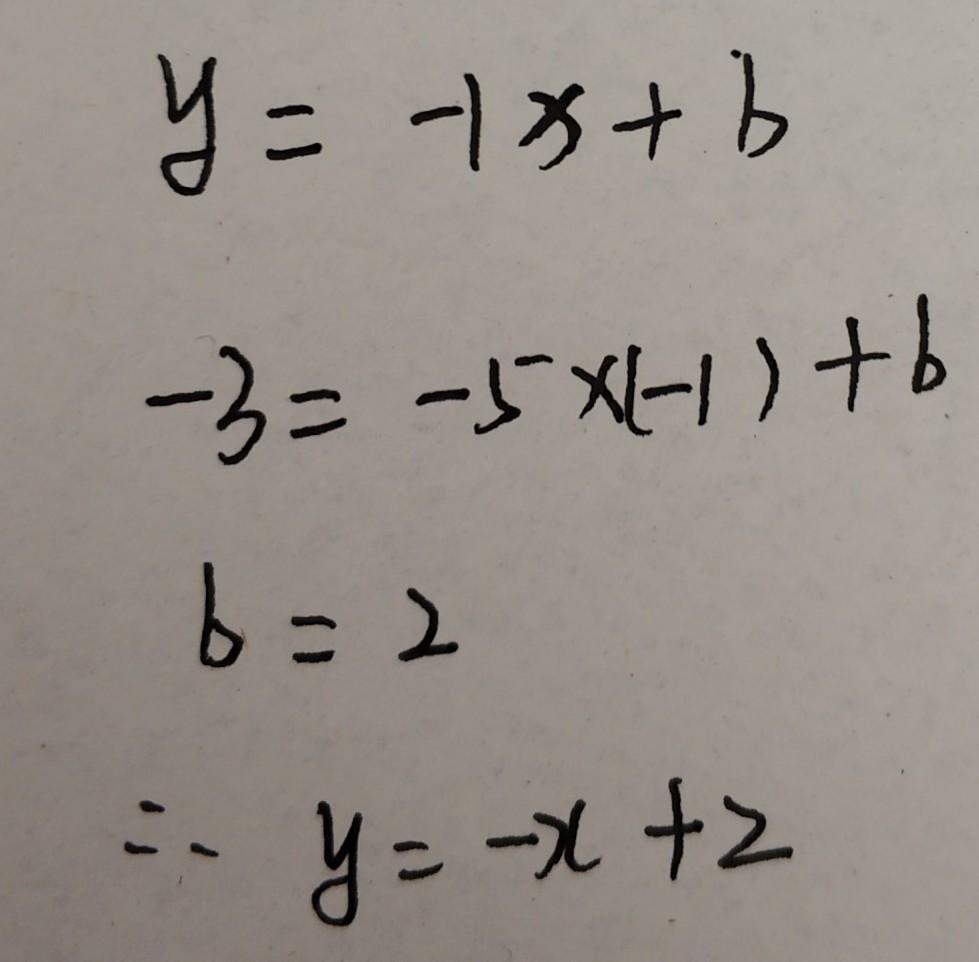 y = -1x + b
-3 = -5×(-1) + b
b = 2
∴ y = -x + 2